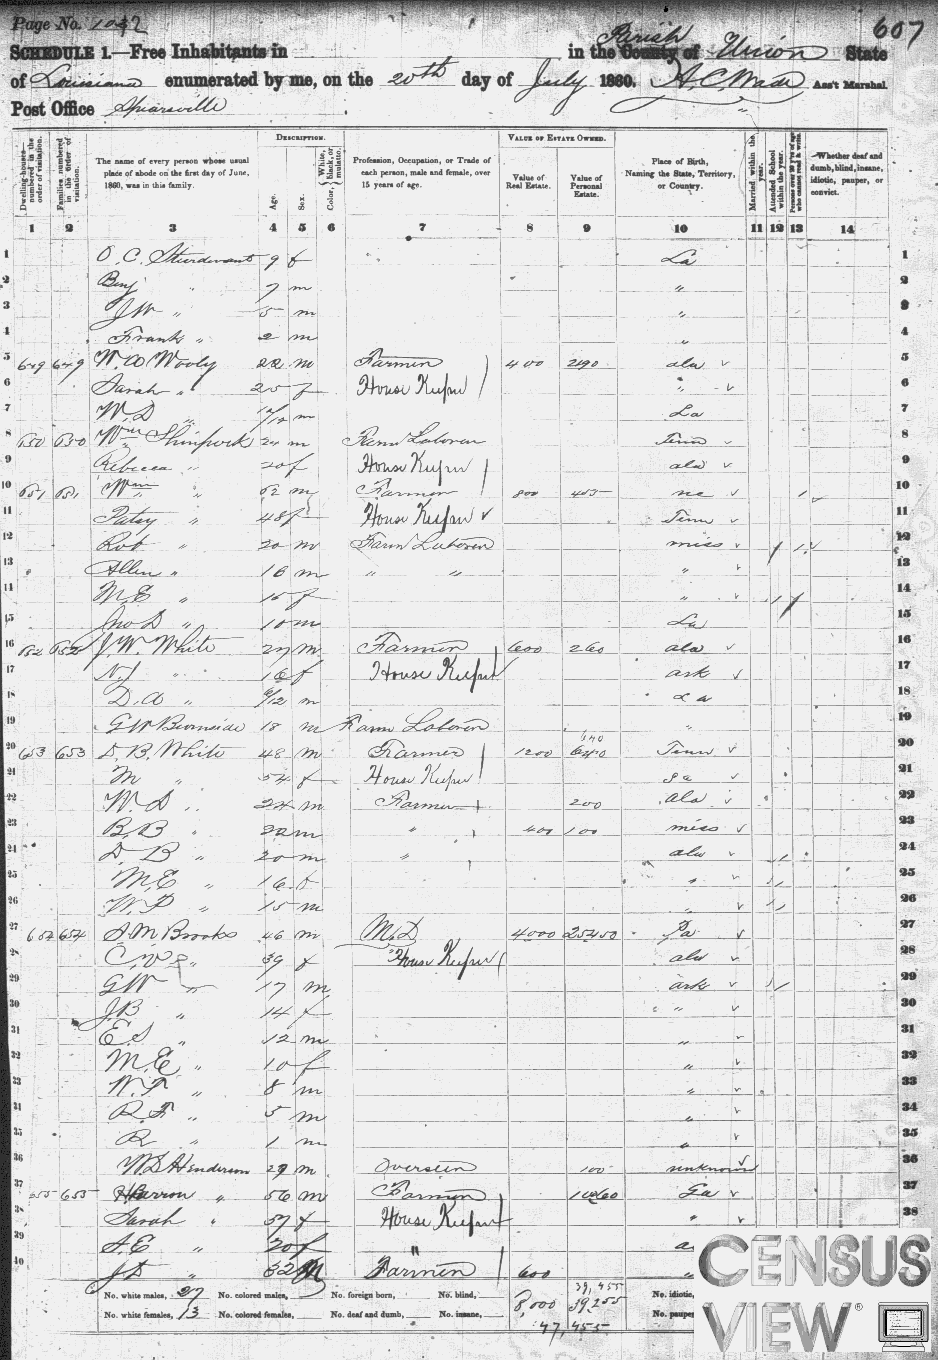 Page No. 1042
607
SCHEDULE 1.—Free Inhabitants in in the County of Parish Union State
of Louisiana enumerated by me, on the 20th day of July 1860. A. C. Wade Ass't Marshal
Post Office Spearsville
Dwelling-houses numbered in the order of visitation.
Families numbered in the order of visitation.
The name of every person whose usual place of abode on the first day of June, 1860, was in this family.
DESCRIPTION.
Age.
Sex.
Color, White, black, or mulatto.
Profession, Occupation, or Trade of each person, male and female, over 15 years of age.
VALUE OF ESTATE OWNED.
Value of Real Estate.
Value of Personal Estate.
Place of Birth, Naming the State, Territory, or Country.
Married within the year.
Attended School within the year.
Persons over 20 y'rs of age who cannot read & write.
Whether deaf and dumb, blind, insane, idiotic, pauper, or convict.
1 2 3 4 5 6 7 8 9 10 11 12 13 14
1 O. C. Sturdevant 9 f La 1
2 Benj " 7 m " 2
3 J W " 5 m " 3
4 Frank " 2 m " 4
5 649 649 W. A Wooly 22 m Farmer 400 290 ala 5
6 Sarah " 25 f House Keeper " 6
7 W. D " /12 m La 7
8 650 650 Wm 24 m Farm Laborer Tenn 8
9 Rebecca " 20 f House Keeper ala 9
10 651 651 Wm " 62 m Farmer 800 455 nc 1 10
11 Patsy " 48 f House Keeper Tenn 11
12 Rob " 20 m Farm Laborer miss 1 1 12
13 Allen " 16 m " " " 13
14 M. E " 15 f " 1 1 14
15 Jno D " 10 m La 15
16 652 652 J. W. White 27 m Farmer 600 260 ala 16
17 N. J " 16 f House Keeper ark 17
18 D. A " /12 m La 18
19 G W Burnside 18 m Farm Laborer " 19
20 653 653 D. B. White 48 m Farmer 1200 640 640 Tenn 20
21 M " 54 f House Keeper 21
22 W. D " 24 m Farmer 200 ala 22
23 B. B " 22 m " 400 100 miss 23
24 D B " 20 m " ala 24
25 M. E " 16 f " 25
26 W. P " 15 m " 26
27 654 654 A. M Brooks 46 m M. D 4000 25450 27
28 C. " 39 f House Keeper ala 28
29 G W " 17 m ark 29
30 J. B " 14 f " 30
31 E. S " 12 m " 31
32 M. E " 10 f 32
33 W. T " 8 m " 33
34 R. F " 5 m " 34
35 R " 1 m " 35
36 W. S Henderson 29 m Overseer 100 unknown 36
37 655 655 " 56 m Farmer Ga 37
38 Sarah " 57 f House Keeper " 38
39 A. E " 20 f "
40 J. D " 32 M Farmer 600
No. white males, 27 No. colored males, No. foreign born, No. blind, 39,455 No. idiotic,
No. white females, 13 No. colored females, No. deaf and dumb, No. insane, 8,000 39255 No. pauper
47,455
CENSUS
VIEW®